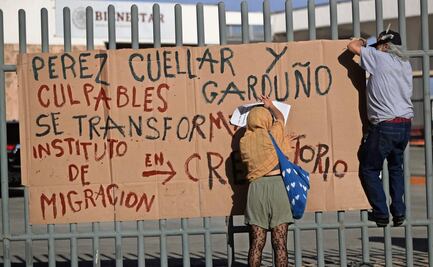 BIENESTAR
PEREZ CUELLAR Y
GARDUÑO
CULPABLES
SE TRANSFORM
INSTITUTO
DE
MIGRACION
EN → CRE TORIO